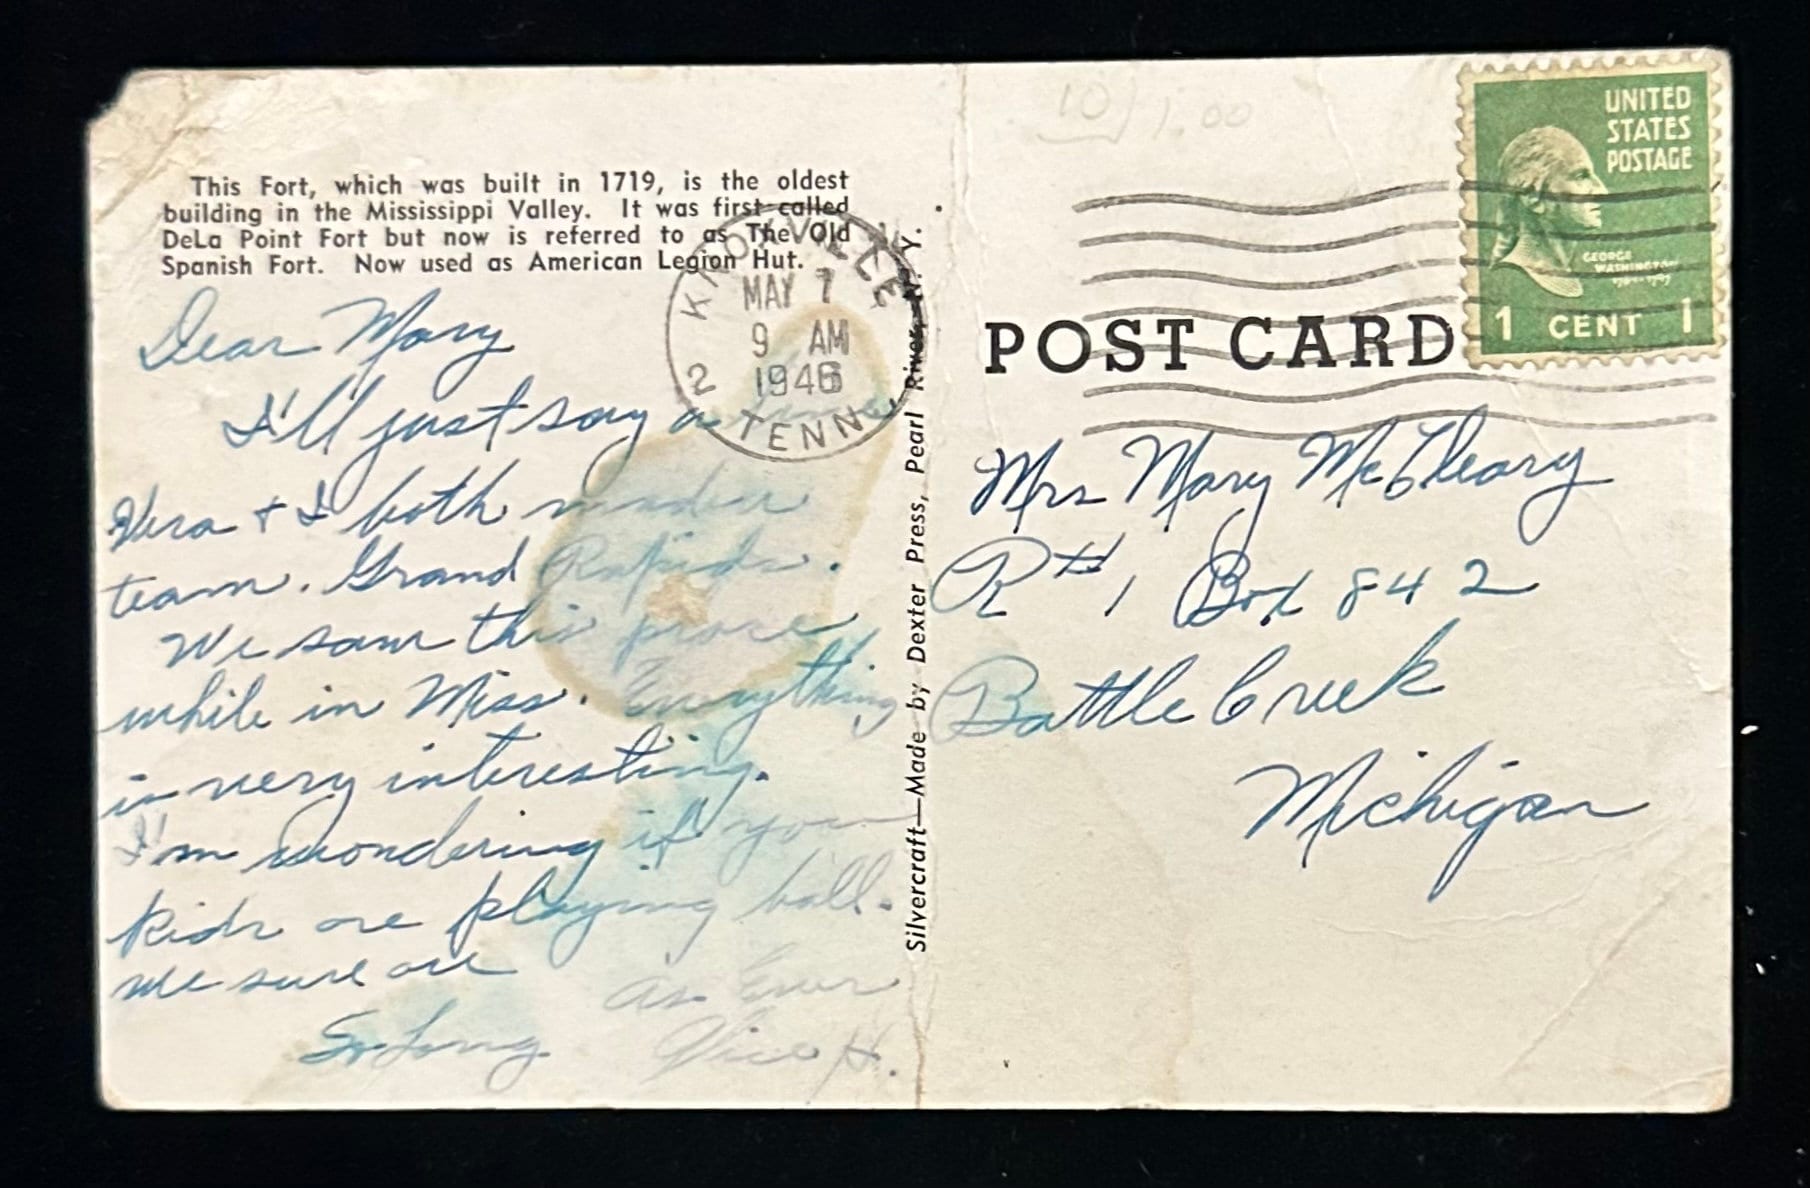 This Fort, which was built in 1719, is the oldest
building in the Mississippi Valley. It was first called
DeLa Point Fort but now is referred to as The Old
Spanish Fort. Now used as American Legion Hut.
KNOXVILLE
MAY 7
9 AM
1946
2 TENN.
Dear Mary
I'll just say a line
Vera + I both made a
team. Grand Rapids.
We saw this place
while in Miss. Everything
is very interesting.
I'm wondering if you
kids are playing ball.
We sure are
So Long
As Ever
H.
Silvercraft—Made by Dexter Press, Pearl River, N. Y.
10 1.00
UNITED
STATES
POSTAGE
GEORGE
WASHINGTON
1 CENT 1
POST CARD
Mrs Mary McCleary
R#1 Box 842
Battle Creek
Michigan